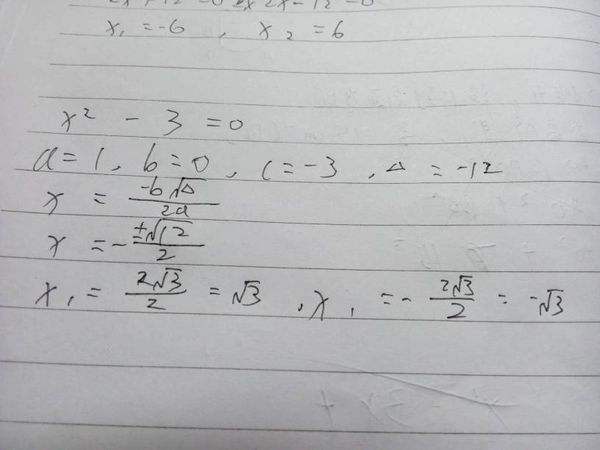 x₁ = -6 , x₂ = 6
x² - 3 = 0
a = 1 , b = 0 , c = -3 , Δ = -12
x = \frac{-b√Δ}{2a}
x = -\frac{±√12}{2}
x₁ = \frac{2√3}{2} = √3 , x₁ = -\frac{2√3}{2} = -√3